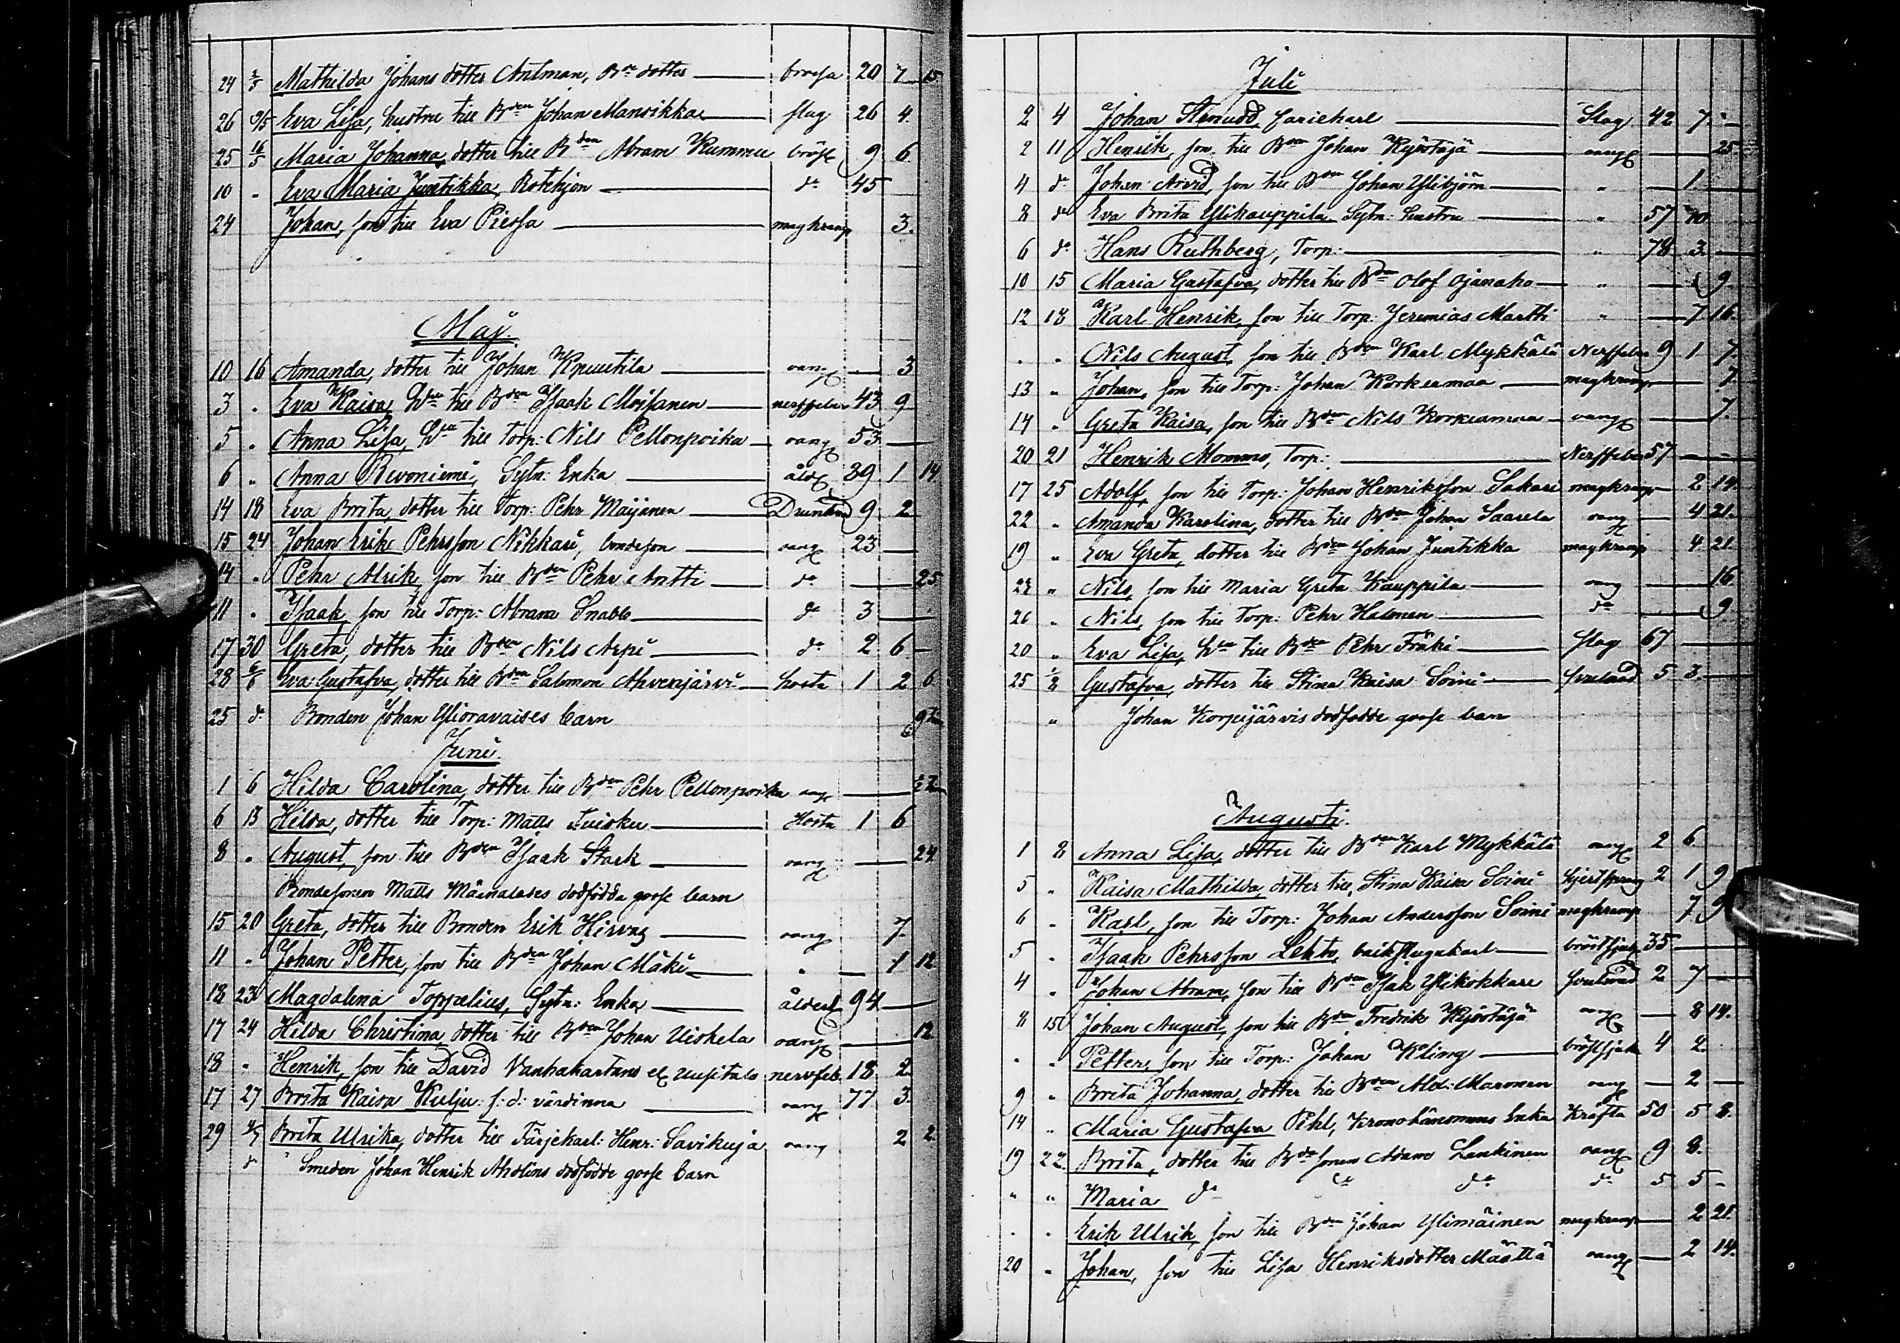 24 2/5 Mathilda Johans dotter Antman, Bde dotter brossa 20 7 15
26 9/5 Eva Lisa, hustru till Bden Johan Mansikka slag 26 4
25 16/5 Maria Johanna, dotter till Bden Abram Kummu bröst 9 6
10 " Eva Maria Juntikka, Rotehjon do 45
24 Johan, son till Eva Piessa magkramp 3.
Maj
10 16 Amanda, dotter till Johan Knuutila oang — 3
3 " Eva Kaisa, Hu till Bden Isaak Moisanen nerffeber 43 9
5 " Anna Lisa, Hu till Torp: Nils Pellonpoika oang 53 —
6 " Anna Revoniemi, Sytn: Enka åld 39 1 14
14 18 Eva Brita, dotter till Torp: Pehr Maijanen Drunknad 9 2
15 24 Johan Erik Pehrsson Nikkari, bondeson oang 23 —
14 " Pehr Alrik, son till Bden Pehr Antti do — — 25
11 " Isaak, son till Torp: Abram Snabb do 3 —
17 30 Greta, dotter till Bden Nils Arpi do 2 6 —
28 6/6 Eva Gustafva, dotter till Bden Salomon Ahvenjärvi hosta 1 2 6
25 do Bonden Johan Ylioravaises barn
Juni
1 6 Hilda Carolina, dotter till Bden Pehr Pellonpoika oang — 1/2
6 13 Hilda, dotter till Torp: Matts Tuisku Hosta 1 6
8 " August, son till Bden Isaak Stark oang — 24
Bondesonen Matts Määttälases dödfödda gosse barn
15 20 Greta, dotter till Bonden Erik Hirvas oang 7.
11 " Johan Petter, son till Bden Johan Mäki " — 1 12
18 23 Magdalena Toppelius, Sytn: Enka ålderd 94 —
17 24 Hilda Christina, dotter till Bden Johan Uiskela oang — 12
18 " Henrik, son till David Vanhakartano el Uusitalo nervfeb. 18 2
17 27 Brita Kaisa Kulju f: d: värdinna oang 77 3.
29 4/7 Brita Ulrika, dotter till Färjekarl: Henr: Savikuja oang 2 2
do Smeden Johan Henrik Aholins dödfödde gosse barn
Juli
2 4 Johan Stenudd, Fariekarl Slag 42 7 —
2 11 Henrik, son till Bden Johan Kyöstäjä oang — 25
4 do Johan Arvid, son till Bden Johan Ylibjörn " — 1 —
8 do Eva Brita Ylikauppila Sytn: hustru " 57 10
6 do Hans Ruthberg, Torp: " 78 3 —
10 15 Maria Gustafva, dotter till Bden Olof Ojanaho " — 9
12 18 Karl Henrik, son till Torp: Jeremias Martti " — 7 16
" " Nils August, son till Bden Karl Mykkälä Nerffeber 9 1 7
13 " Johan, son till Torp: Johan Korkeamaa magkramp — 7
14 " Greta Kaisa, son till Bden Nils Korkeamaa oang — 7.
20 21 Henrik Mommo, Torp: Nerffeber 57 — —
17 25 Adolf, son till Torp: Johan Henriksson Sakari magkramp — 2 14.
22 " Amanda Karolina, dotter till Bden Johan Saarela oang — 4 21.
19 " Eva Greta, dotter till Bden Johan Juntikka magkramp 4 21.
23 " Nils, son till Maria Greta Kauppila oang — — 16
26 " Nils, son till Torp: Pehr Halonen do — 9
20 " Eva Lisa, Hu till Bden Pehr Fräki slag 67 —
25 1/8 Gustafva, dotter till Stina Kaisa Soini 5 3 —
" Johan Korpijärvis dödfödde gosse barn
Augusti.
1 8 Anna Lisa, dotter till Bden Karl Mykkälä oang 2 6
5 " Kaisa Mathilda, dotter till Stina Kaisa Soini 2 1 9
6 " Karl, son till Torp: Johan Andersson Soini magkramp 7 9
5 " Isaak Pehrsson Lehto, bröstsjuk 35 —
4 " Johan Abram, son till Bden Isak Ylikokkare 2 7 —
8 15 Johan August, son till Bden Fredrik Kyöstäjä oang — 8 14.
" " Petter, son till Torp: Johan Kling bröstsjuk 4 2.
9 " Brita Johanna, dotter till Bden Ald: Maronen oang — 2 —
14 " Maria Gustafva Pihl, Kronolänsmans Enka Kräfta 50 5 8.
19 22 Brita, dotter till Bdesonen Adam Lankinen oang 9 8.
" " Maria do do do do 5 5 —
" " Erik Ulrik, son till Bden Johan Ylimäinen magkramp — 2 21.
20 " Johan, son till Lisa Henriksdotter Määttä oang — 2 14.